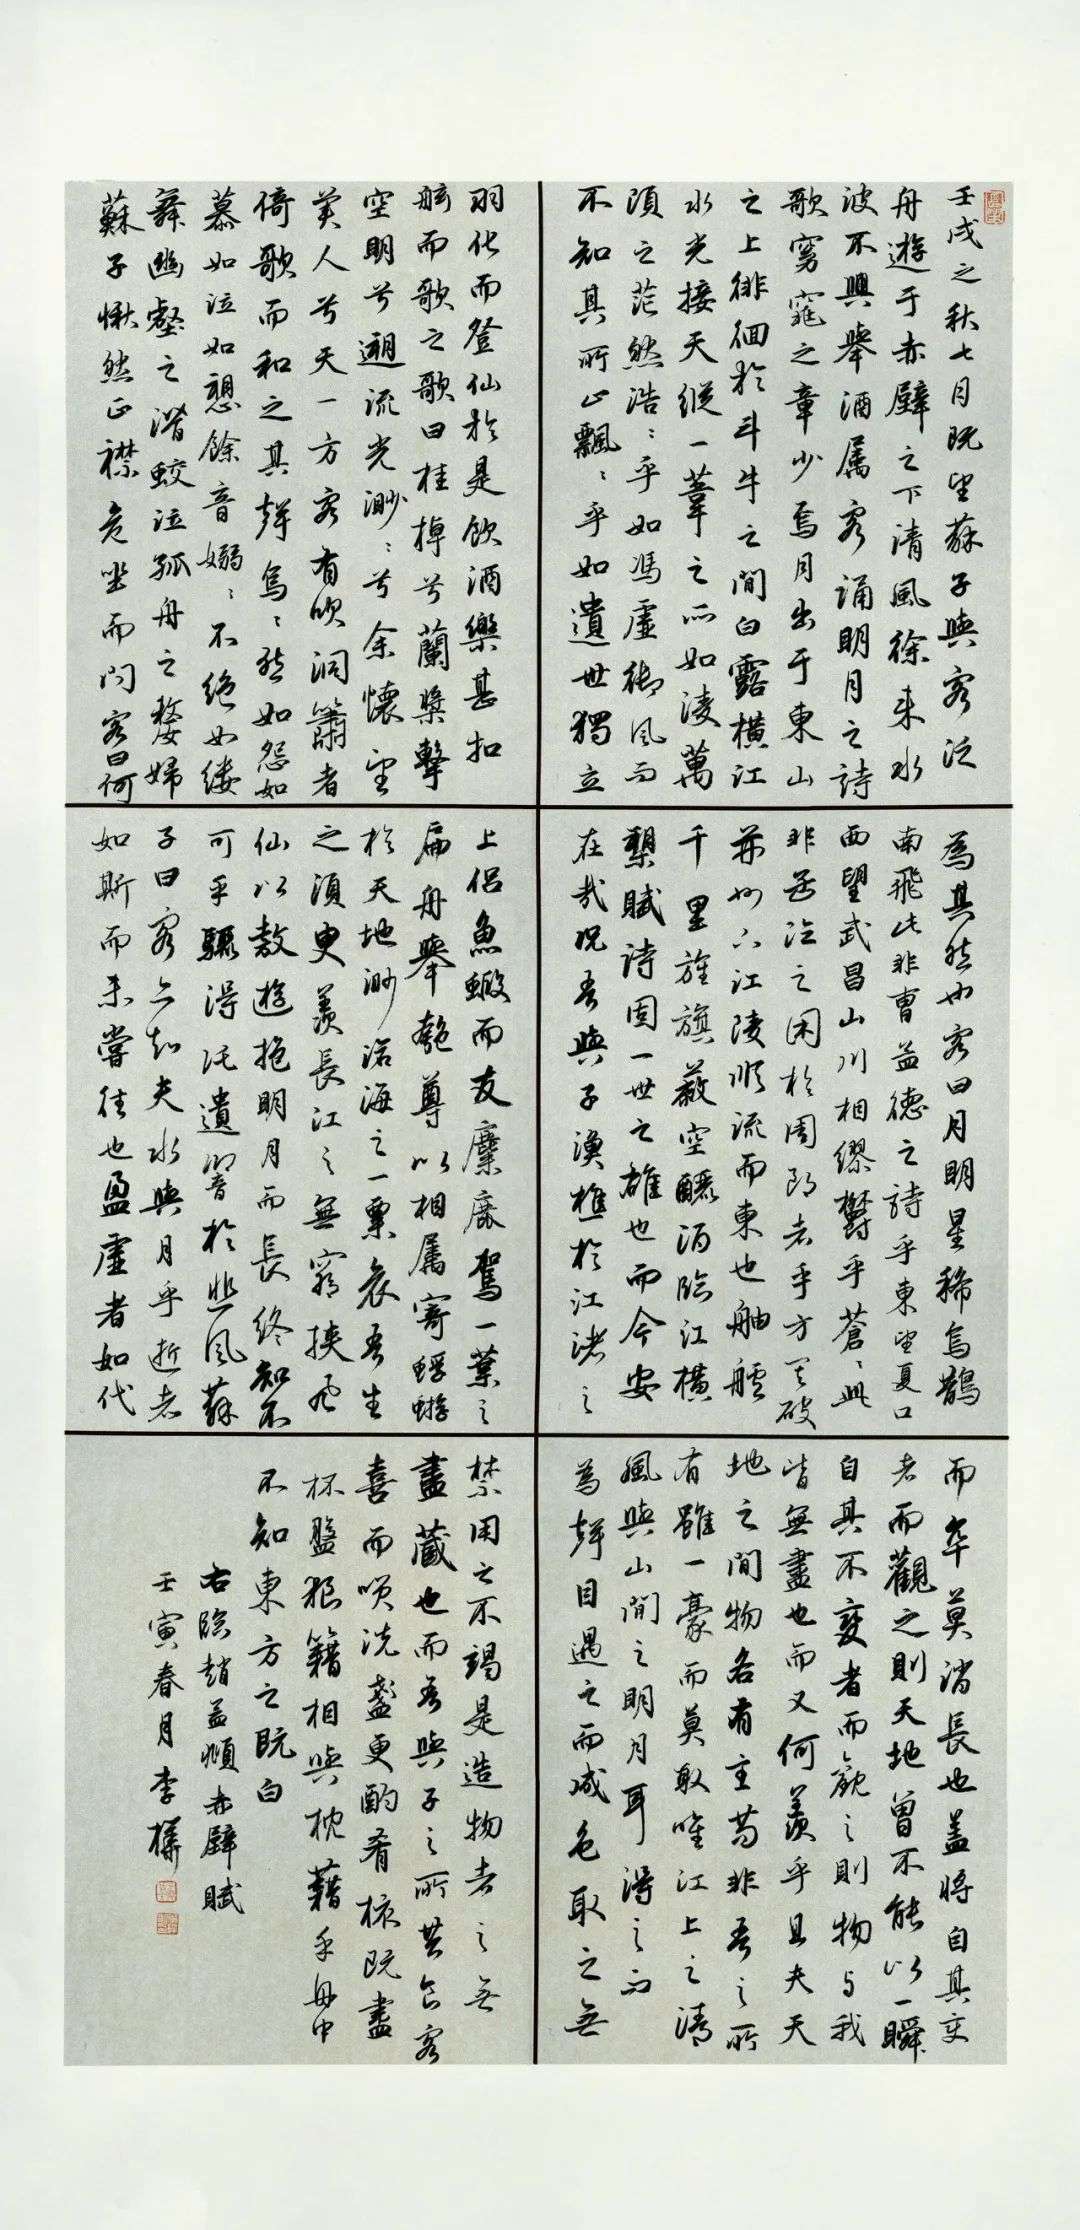 壬戌之秋七月既望蘇子與客泛
舟遊于赤壁之下清風徐来水
波不興舉酒属客誦明月之詩
歌窈窕之章少焉月出于東山
之上徘徊於斗牛之間白露橫江
水光接天縱一葦之所如淩萬
頃之茫然浩〻乎如馮虛御風而
不知其所止飄〻乎如遺世獨立
羽化而登仙於是飲酒樂甚扣
舷而歌之歌曰桂棹兮蘭槳擊
空明兮遡流光渺〻兮余懷望
美人兮天一方客有吹洞簫者
倚歌而和之其聲烏〻然如怨如
慕如泣如愬餘音嫋〻不絕如縷
舞幽壑之潛蛟泣孤舟之嫠婦
蘇子愀然正襟危坐而問客曰何
為其然也客曰月明星稀烏鵲
南飛此非曹孟德之詩乎東望夏口
西望武昌山川相繆欝乎蒼〻此
非孟德之困於周郎者乎方其破
荊州下江陵順流而東也舳艫
千里旌旗蔽空釃酒臨江橫
槊賦詩固一世之雄也而今安
在哉況吾與子漁樵於江渚之
上侣魚蝦而友麋鹿駕一葉之
扁舟舉匏尊以相属寄蜉蝣
於天地渺滄海之一粟哀吾生
之須臾羨長江之無窮挾飛
仙以敖遊抱明月而長終知不
可乎驟得託遺響於悲風蘇
子曰客亦知夫水與月乎逝者
如斯而未嘗往也盈虛者如代
而卒莫消長也蓋將自其变
者而觀之則天地曾不能以一瞬
自其不變者而觀之則物与我
皆無盡也而又何羨乎且夫天
地之間物各有主苟非吾之所
有雖一豪而莫取唯江上之清
風與山間之明月耳得之而
為聲目遇之而成色取之无
禁用之不竭是造物者之无
盡藏也而吾與子之所共食客
喜而笑洗盞更酌肴核既盡
杯盤狼籍相與枕藉乎舟中
不知東方之既白
右臨趙孟頫赤壁賦
壬寅春月李